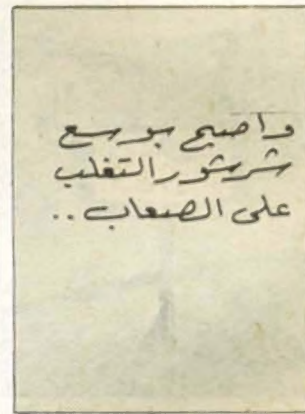 واصبح بوسع
شرشور التغلب
على الصعاب..